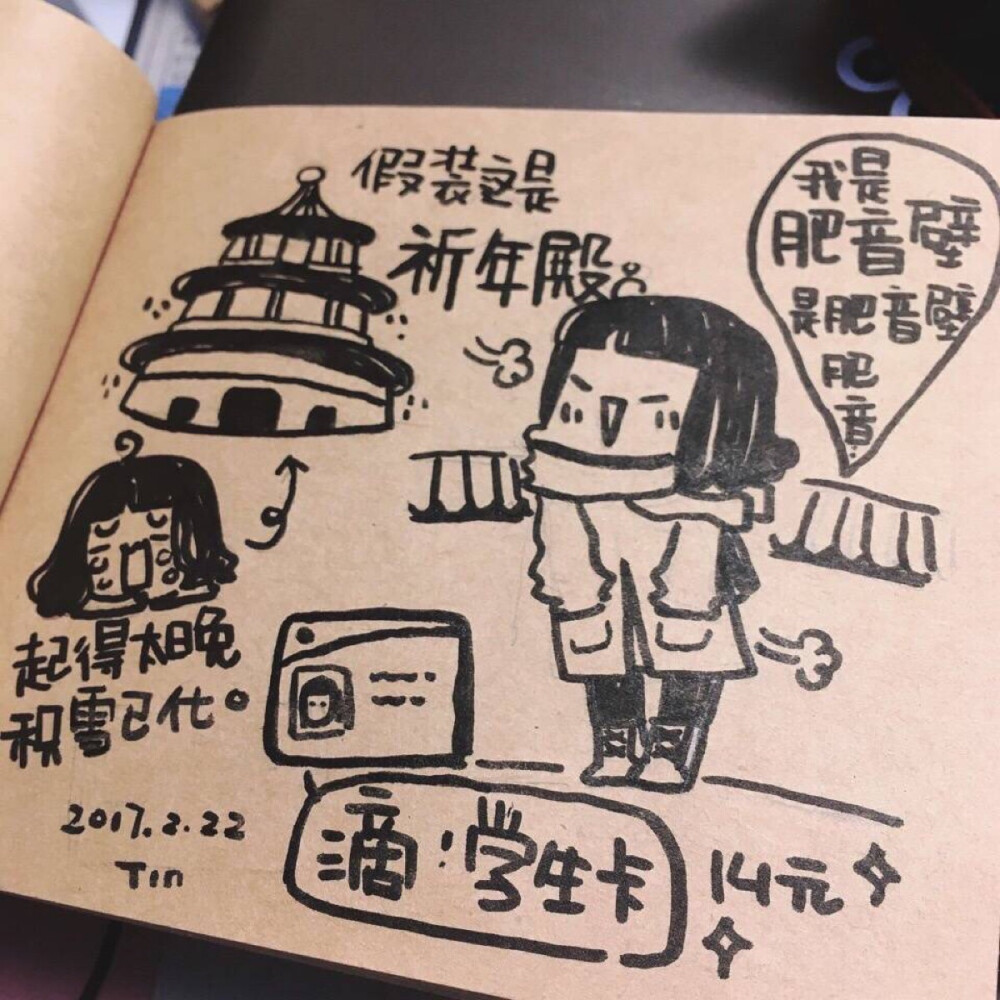 假装这是
祈年殿。
我是
肥音壁
是肥音壁
肥
音…
起得太晚
积雪已化。
2017.2.22
Tin
滴!学生卡
14元